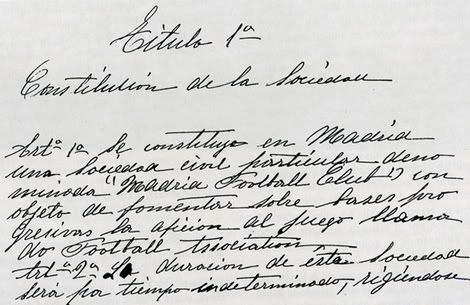 Titulo 1ª
Constitución de la Sociedad
Artº 1º Se constituye en Madrid
una Sociedad civil particular deno
minada "Madrid Football Club" con
objeto de fomentar sobre bases pro
gresivas la aficion al juego llama
do Football Association.
Artº 2º La duracion de ésta Sociedad
será por tiempo indeterminado, rigiéndose